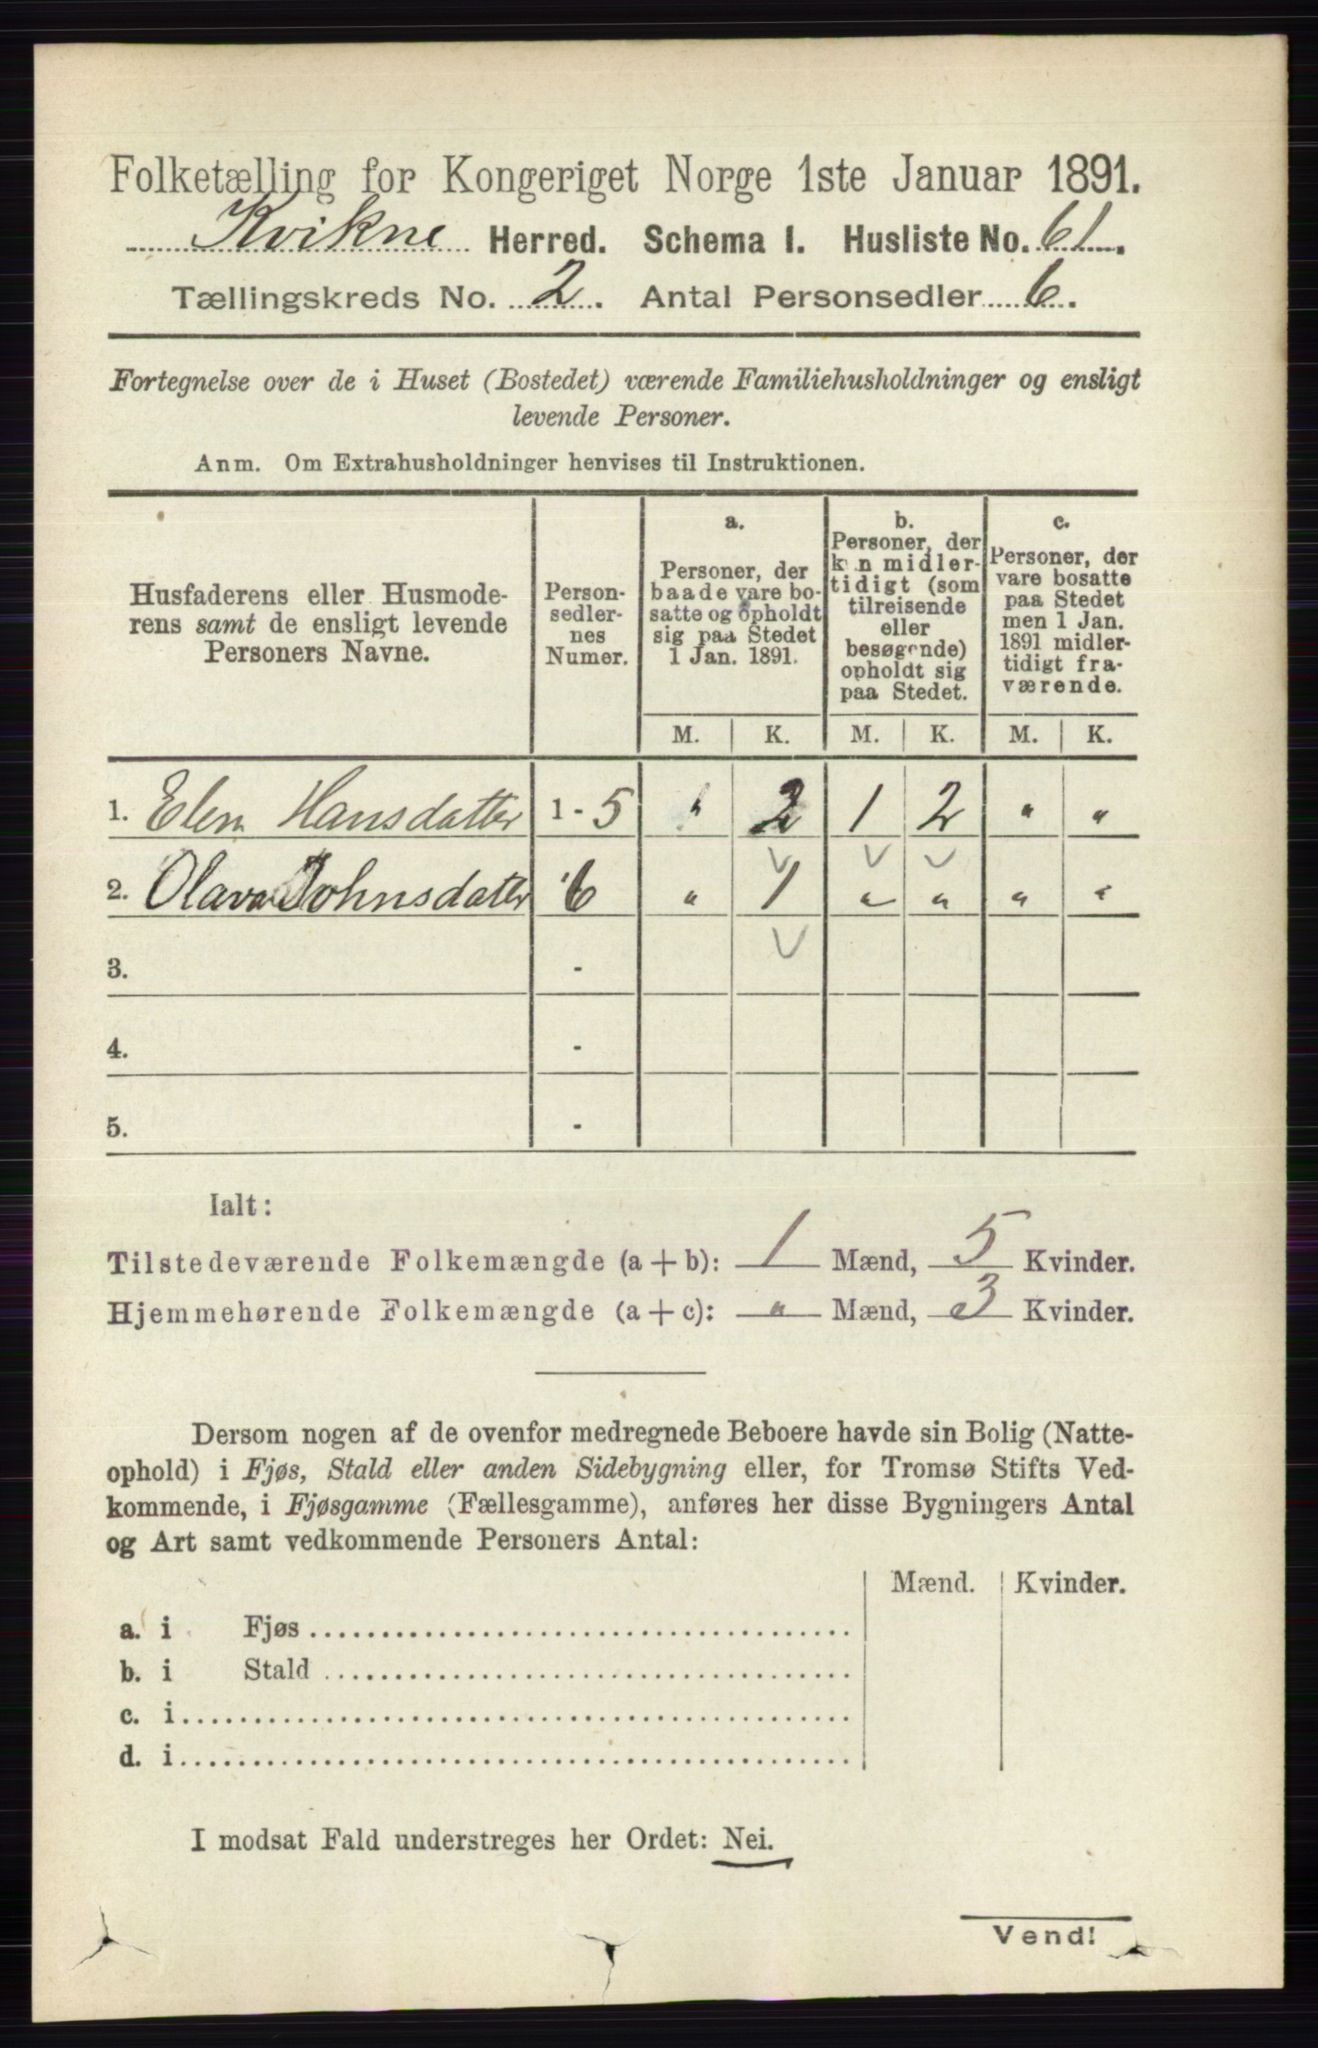 Folketælling for Kongeriget Norge 1ste Januar 1891.
Kvikne Herred. Schema I. Husliste No. 61.
Tællingskreds No. 2. Antal Personsedler 6.
Fortegnelse over de i Huset (Bostedet) værende Familiehusholdninger og ensligt
levende Personer.
Anm. Om Extrahusholdninger henvises til Instruktionen.
Husfaderens eller Husmode-
rens samt de ensligt levende
Personers Navne.
Person-
sedler-
nes
Numer.
a.
Personer, der
baade vare bo-
satte og opholdt
sig paa Stedet
1 Jan. 1891.
b.
Personer, der
kun midler-
tidigt (som
tilreisende
eller
besøgende)
opholdt sig
paa Stedet.
c.
Personer, der
vare bosatte
paa Stedet
men 1 Jan.
1891 midler-
tidigt fra-
værende.
M. K. M. K. M. K.
1. Elen Hansdatter 1 - 5 " 2 1 2 " "
2. Olava Johnsdatter 6 " 1 " " " "
3. -
4. -
5. -
Ialt:
Tilstedeværende Folkemængde (a + b): 1 Mænd, 5 Kvinder.
Hjemmehørende Folkemængde (a + c): " Mænd, 3 Kvinder.
Dersom nogen af de ovenfor medregnede Beboere havde sin Bolig (Natte-
ophold) i Fjøs, Stald eller anden Sidebygning eller, for Tromsø Stifts Ved-
kommende, i Fjøsgamme (Fællesgamme), anføres her disse Bygningers Antal
og Art samt vedkommende Personers Antal:
Mænd. Kvinder.
a. i Fjøs
b. i Stald
c. i
d. i
I modsat Fald understreges her Ordet: Nei.
Vend!